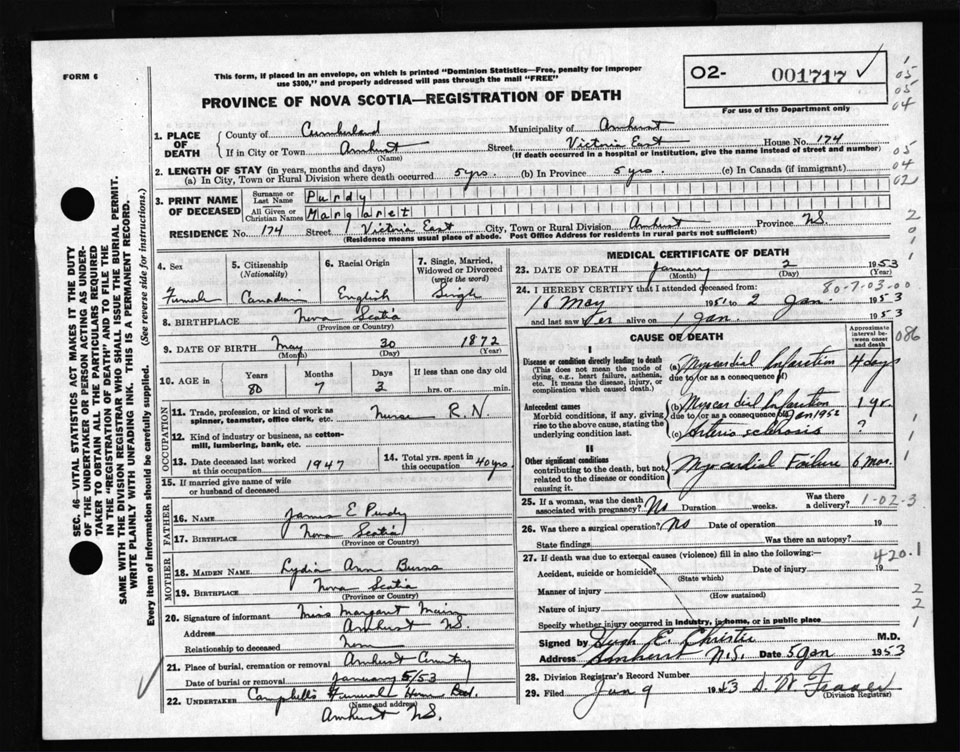 FORM 6
This form, if placed in an envelope, on which is printed "Dominion Statistics—Free, penalty for improper
use $300," and properly addressed will pass through the mail "FREE"
O2- 001717
For use of the Department only
PROVINCE OF NOVA SCOTIA—REGISTRATION OF DEATH
1 05 05 04
1. PLACE OF DEATH
County of Cumberland Municipality of Amherst
If in City or Town Amherst Street Victoria East House No. 174
(Name) (If death occurred in a hospital or institution, give the name instead of street and number)
05 04 02
2. LENGTH OF STAY (in years, months and days)
(a) In City, Town or Rural Division where death occurred 5 yrs. (b) In Province 5 yrs. (c) In Canada (if immigrant)
3. PRINT NAME OF DECEASED
Surname or Last Name Purdy
All Given or Christian Names Margaret
RESIDENCE No. 174 Street Victoria East City, Town or Rural Division Amherst Province N.S.
(Residence means usual place of abode. Post Office Address for residents in rural parts not sufficient)
2 0 1
SEC. 46—VITAL STATISTICS ACT MAKES IT THE DUTY
OF THE UNDERTAKER OR PERSON ACTING AS UNDER-
TAKER TO OBTAIN ALL THE PARTICULARS REQUIRED
IN THE "REGISTRATION OF DEATH" AND TO FILE THE
SAME WITH THE DIVISION REGISTRAR WHO SHALL ISSUE THE BURIAL PERMIT.
WRITE PLAINLY WITH UNFADING INK. THIS IS A PERMANENT RECORD.
Every item of information should be carefully supplied. (See reverse side for instructions.)
4. Sex
Female
5. Citizenship
(Nationality)
Canadian
6. Racial Origin
English
7. Single, Married,
Widowed or Divorced
(write the word)
Single
8. BIRTHPLACE Nova Scotia
(Province or Country)
9. DATE OF BIRTH May 30 1872
(Month) (Day) (Year)
10. AGE in Years Months Days If less than one day old
80 7 3 hrs. or min.
OCCUPATION
11. Trade, profession, or kind of work as
spinner, teamster, office clerk, etc. Nurse R.N.
12. Kind of industry or business, as cotton-
mill, lumbering, bank, etc.
13. Date deceased last worked
at this occupation 1947
14. Total yrs. spent in
this occupation 40 yrs.
15. If married give name of wife
or husband of deceased
FATHER
16. NAME James E Purdy
17. BIRTHPLACE Nova Scotia
(Province or Country)
MOTHER
18. MAIDEN NAME Lydia Ann Burns
19. BIRTHPLACE Nova Scotia
(Province or Country)
20. Signature of informant Miss Margaret
Address Amherst N.S.
Relationship to deceased
21. Place of burial, cremation or removal Amherst
Date of burial or removal January 5/53
22. UNDERTAKER Campbell's Funeral Home
(Name and address)
Amherst N.S.
MEDICAL CERTIFICATE OF DEATH
23. DATE OF DEATH January 2 1953
(Month) (Day) (Year)
24. I HEREBY CERTIFY that I attended deceased from: 80-7-03-00
16 May 1951 to 2 Jan. 1953
and last saw her alive on 1 Jan. 1953
CAUSE OF DEATH
Approximate
interval be-
tween onset
and death
086
I
Disease or condition directly leading to death
(This does not mean the mode of
dying, e.g., heart failure, asthenia,
etc. It means the disease, injury, or
complication which caused death.)
(a) Myocardial Infarction 4 days
due to (or as a consequence of)
Antecedent causes
Morbid conditions, if any, giving
rise to the above cause, stating the
underlying condition last.
(b) Myocardial Infarction 1 yr.
due to (or as a consequence of) Jan 1952
(c) Arteriosclerosis ?
II
Other significant conditions
contributing to the death, but not
related to the disease or condition
causing it.
Myocardial Failure 6 mos.
1 1 1
25. If a woman, was the death
associated with pregnancy? No Duration weeks. Was there
a delivery?
1-02-3
26. Was there a surgical operation? No Date of operation 19
State findings Was there an autopsy?
27. If death was due to external causes (violence) fill in also the following:—
420.1
Accident, suicide or homicide? Date of injury 19
(State which)
Manner of injury
(How sustained)
Nature of injury
2 2 1
Specify whether injury occurred in industry, in home, or in public place
Signed by Hugh E. Christie M.D.
Address Amherst N.S. Date 5 Jan 1953
28. Division Registrar's Record Number
29. Filed Jan 9 1953 D. W. Fraser
(Division Registrar)